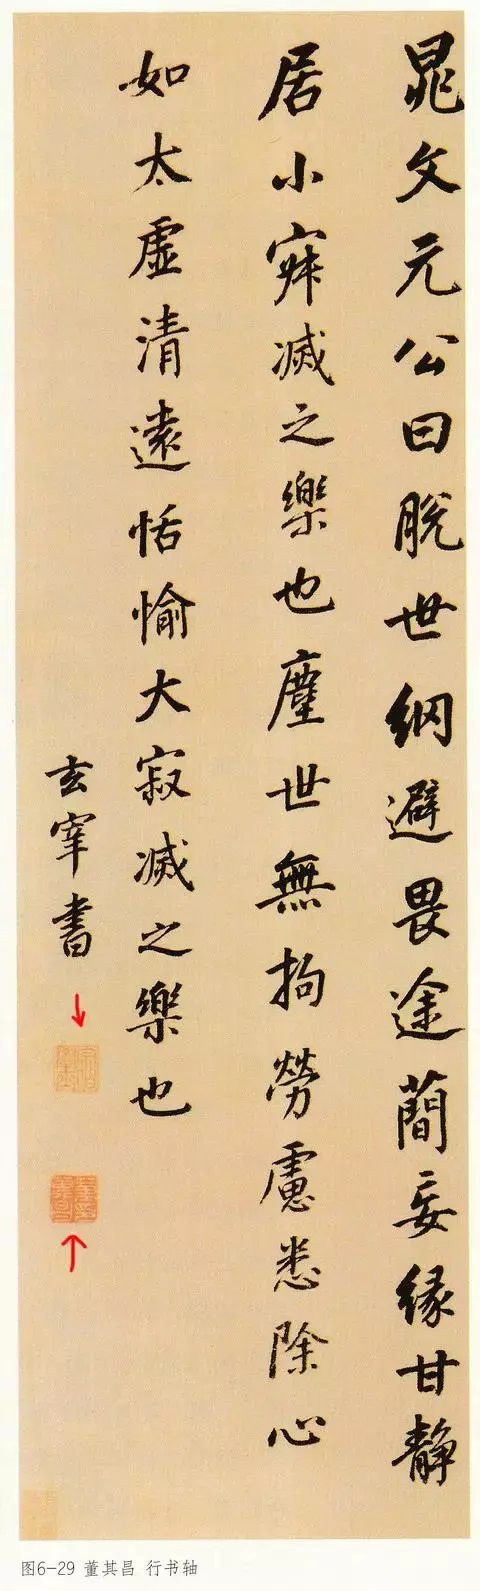 晁文元公曰脫世綱避畏途蕳妄緣甘靜
居小寂滅之樂也塵世無拘勞慮悉除心
如太虛清遠恬愉大寂滅之樂也
玄宰書
图6-29 董其昌 行书轴